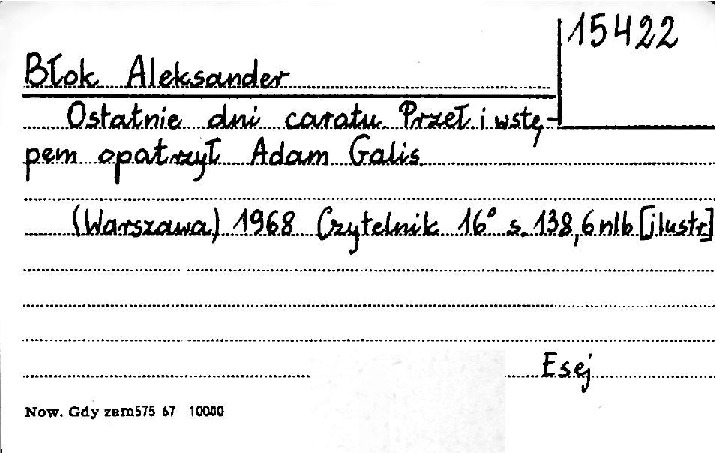 15422
Błok Aleksander
Ostatnie dni caratu Przeł i wstę-
pem opatrzył Adam Galis
(Warszawa) 1968 Czytelnik 16° s. 138,6 nlb [ilustr]
Esej
Now. Gdy zam 575 67 10000